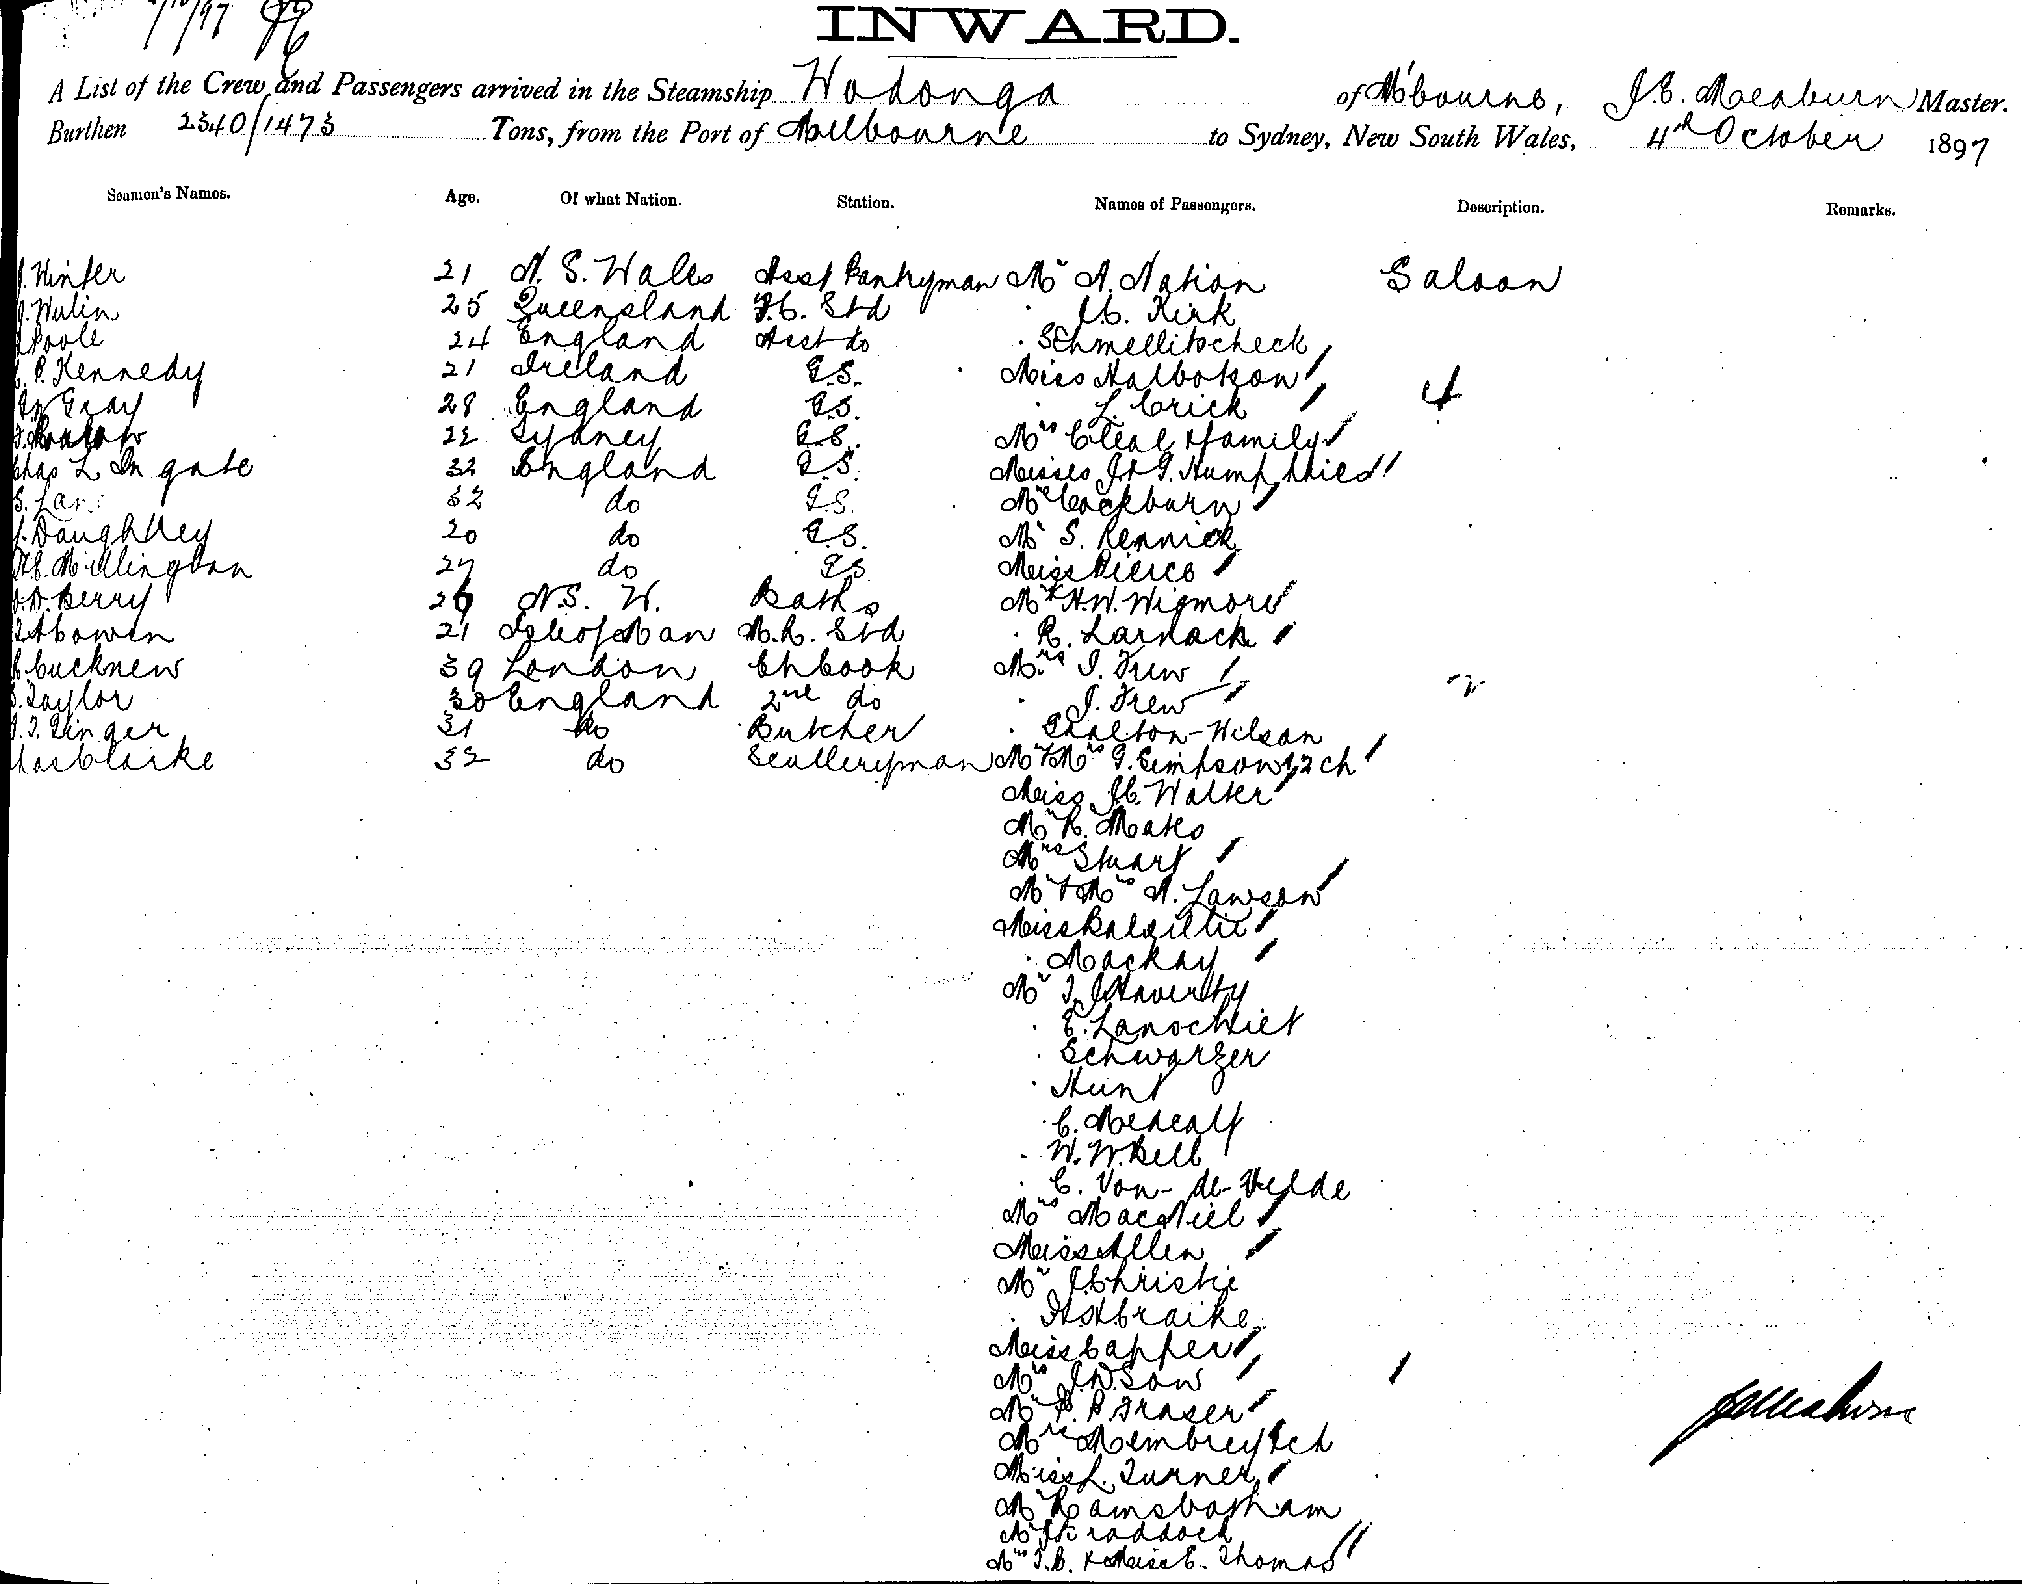 7/10/97
INWARD.
A List of the Crew and Passengers arrived in the Steamship Wodonga of M'bourne, J.C. Meaburn Master.
Burthen 2340/1473 Tons, from the Port of Melbourne to Sydney, New South Wales, 4th October 1897
Seamen's Names. Age. Of what Nation. Station. Names of Passengers. Description. Remarks.
Winter 21 N. S. Wales Asst Pantryman Mr A. Nation Saloon
Walin 25 Queensland F.C. Std J.C. Kirk
Poole 24 England Asst do Schmellitscheck
P. Kennedy 21 Ireland G.S. Miss Halbotson 4
Gray 28 England G.S. L. Crick
22 Sydney G.S. Mrs Cleal & family
Chas L Ingate 32 England G.S. Misses J. & G. Humphries
S. Lan 32 do G.S. Cockburn
J. Daughtrey 20 do G.S. Mr S. Rennick
H.C. Millington 27 do G.S. Miss Pierce
Berry 26 N.S. W. Baths Mr H.W. Wigmore
Cowen 21 Isle of Man M.R. Std R. Larnack
Cucknew 39 London Ch Cook Mrs I. Frew
S. Taylor 30 England 2nd do J. Frew
J. T. Ginger 31 do Butcher Carlton-Wilson
Clarke 32 do Sculleryman Mr & Mrs G. Simpson & 2 ch
Miss J.C. Walter
Mr R. Mates
Mrs Stuart
Mr & Mrs A. Lawson
Miss Balgillie
Mackay
Mr T. J. Haverty
E. Lanschiet
Schwarzer
Hunt
C. Medcalf
W. W. Bell
C. Von-de-Velde
Mrs MacNiel
Miss Allen
Mr J. Christie
Braike
Miss Capper
Mrs J.W. Sow
Mr P. P. Fraser
Mrs Membrey & ch
Miss L. Turner
Mr Ramsbotham
Mr J. Craddock
Mrs T.B. & Miss E. Thomas
J C Meaburn